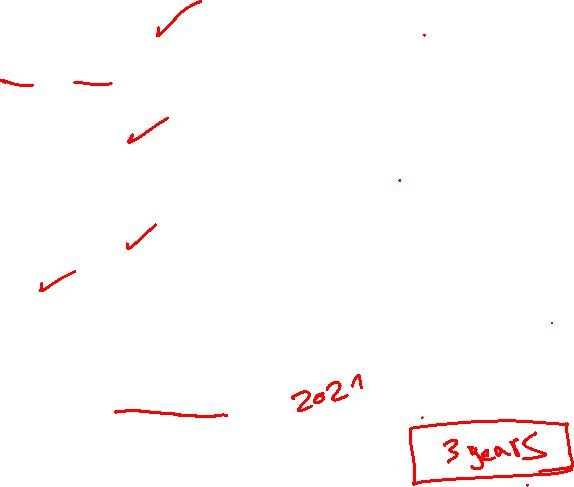 2021
3 years